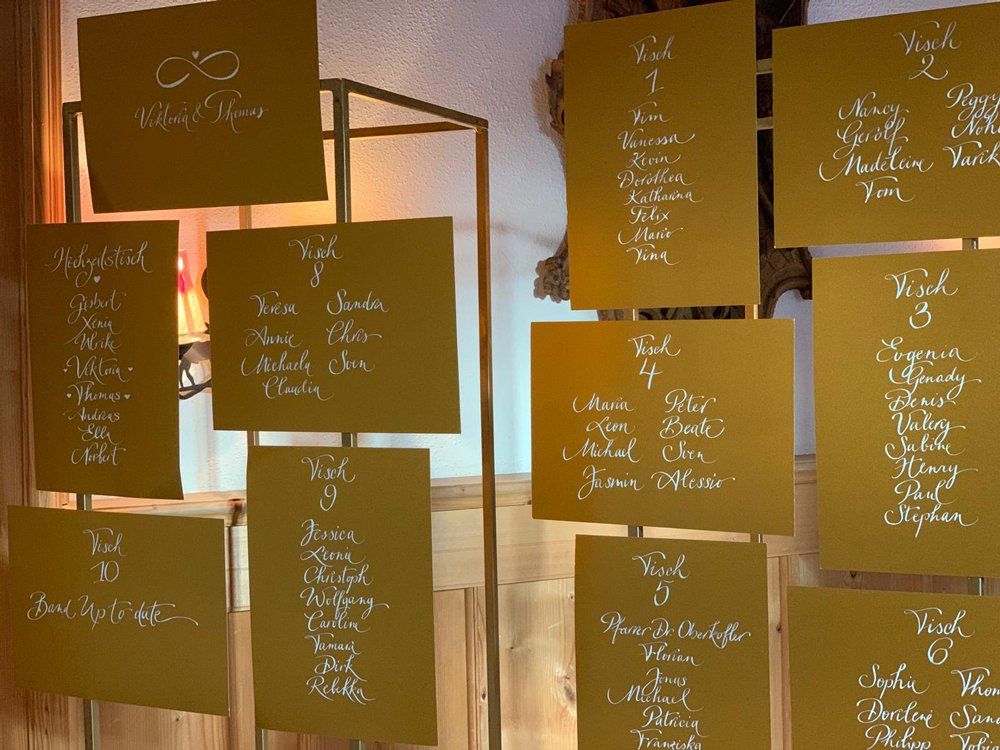 Viktoria & Thomas
Hochzeitstisch
Gisbert
Xenia
Ulrike
Viktoria
Thomas
Andreas
Ella
Norbert
Tisch
8
Teresa Sandra
Annie Chris
Michaela Sven
Claudia
Tisch
10
Band Up to date
Tisch
9
Jessica
Leonie
Christoph
Wolfgang
Carolin
Tamara
Dirk
Rebekka
Tisch
1
Tim
Vanessa
Kevin
Dorothea
Katharina
Felix
Mario
Tina
Tisch
2
Nancy Peggy
Gerolf
Madeleine Tarik
Tom
Tisch
3
Evgenia
Genady
Denis
Valery
Sabine
Henry
Paul
Stephan
Tisch
4
Maria Peter
Leon Beate
Michael Sven
Jasmin Alessio
Tisch
5
Pfarrer Dr. Oberkofler
Florian
Jonas
Michael
Patricia
Franziska
Tisch
6
Sophia
Philipp